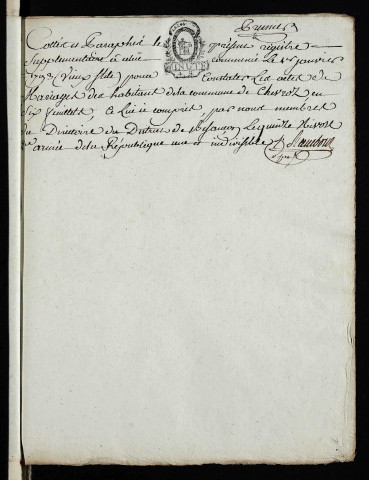 Premier
Cotté et Paraphé le présent régistre
Supplémentaire à celui commencé le 1er janvier
1793 (vieux stile) pour Constater les actes de
Mariages des habitans de la commune de Chevroz en
Six feuillets, Celui ci compris, par nous membres
du Directoire du District de Besançon le quinze Nivose
2e année de la République une et indivisible
MINUTE